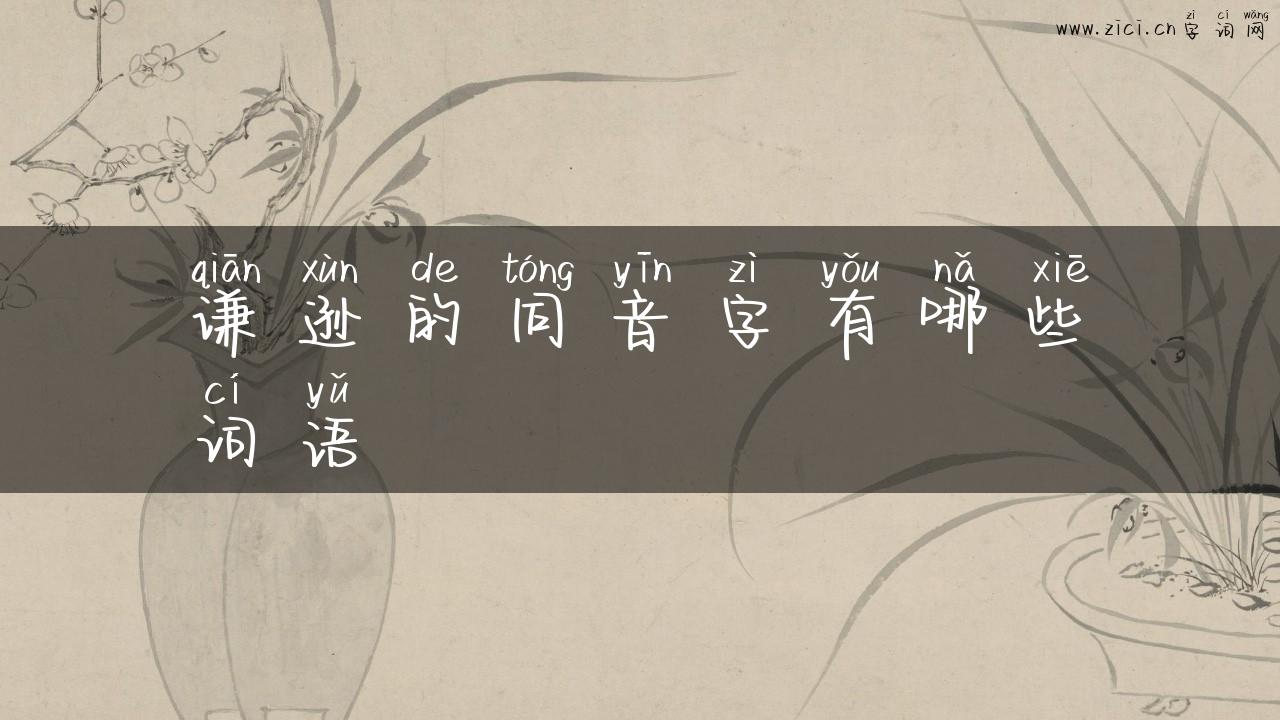 zì cí wǎng
www.zici.cn 字词网
qiān xùn de tóng yīn zì yǒu nǎ xiē
谦逊的同音字有哪些
cí yǔ
词语